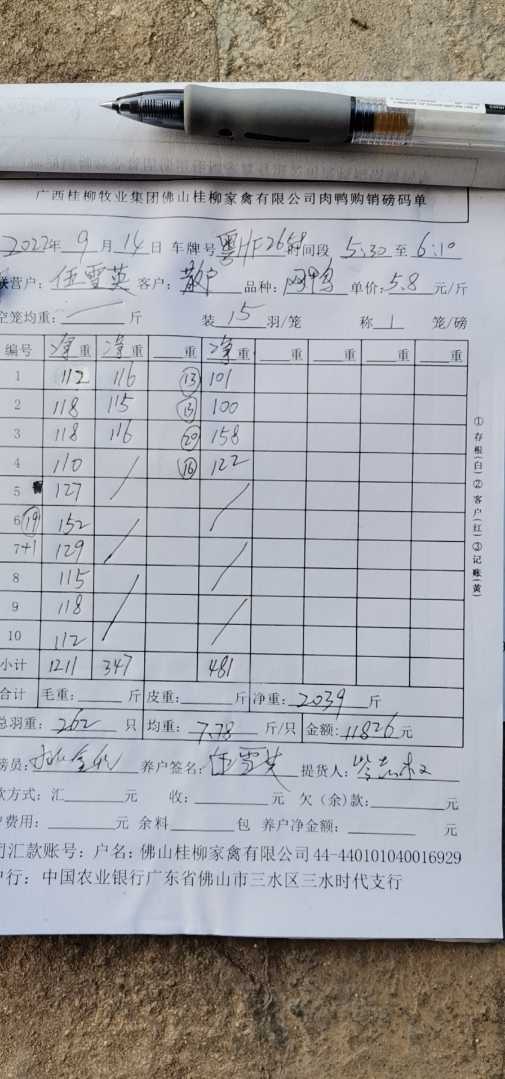 广西桂柳牧业集团佛山桂柳家禽有限公司肉鸭购销磅码单
2022年 9 月 14 日 车牌号 粤HF2658 时间段 5:30 至 6:10
联营户: 伍雪英 客户: 散户 品种: 网鸭 单价: 5.8 元/斤
空笼均重: / 斤 装 15 羽/笼 称 1 笼/磅
编号 净重 净重 重 净重 重 重 重 重
1 112 116 ⑬ 101
2 118 115 ⑬ 100
3 118 116 ⑳ 158
4 110 / ⑯ 122
5 127 /
6 ⑲ 152 /
7+1 129 /
8 115 /
9 118 /
10 112
小计 1211 347 481
合计 毛重: 斤 皮重: 斤 净重: 2039 斤
总羽重: 262 只 均重: 7.78 斤/只 金额: 11826 元
磅员: 养户签名: 伍雪英 提货人:
款方式: 汇 元 收: 元 欠(余)款: 元
户费用: 元 余料 包 养户净金额: 元
司汇款账号: 户名: 佛山桂柳家禽有限公司 44-440101040016929
户行: 中国农业银行广东省佛山市三水区三水时代支行
①存根(白)②客户(红)③记账(黄)